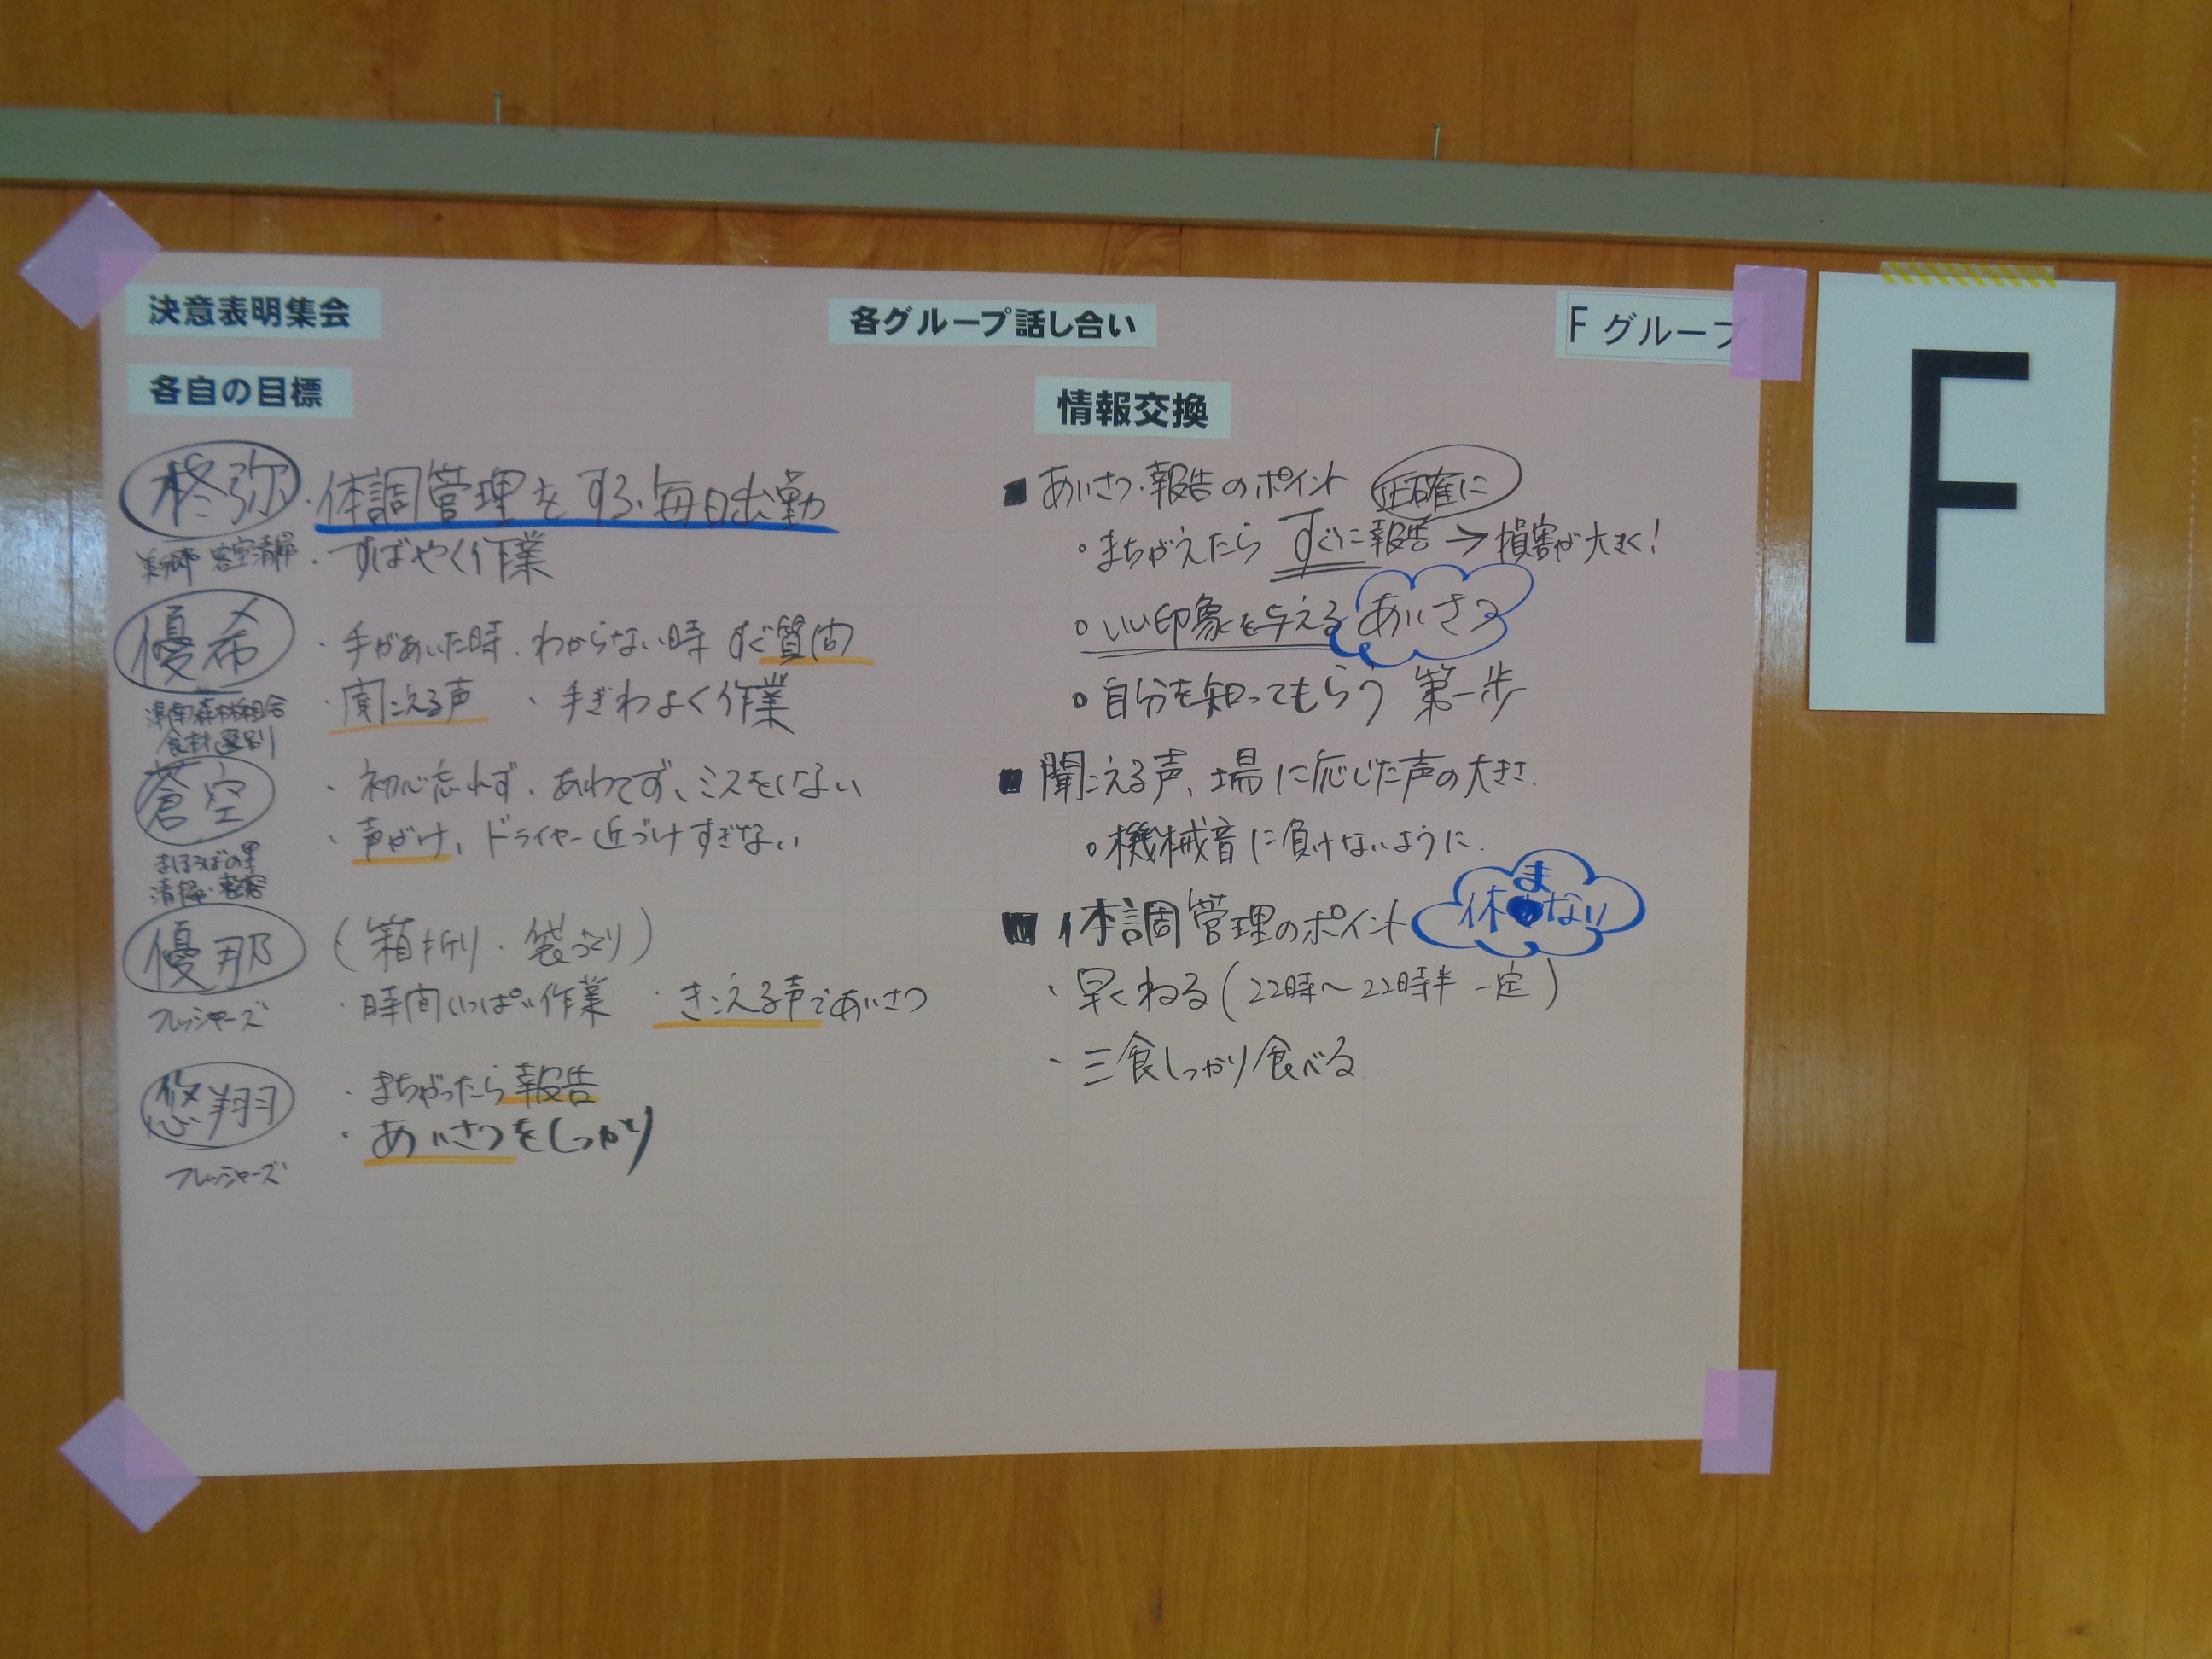 決意表明集会
各グループ話し合い
Fグループ
F
各自の目標
柊弥
・体調管理をする・毎日出勤
客室清掃
・すばやく作業
優希
・手があいた時、わからない時 すぐ質問
・聞こえる声 ・手ぎわよく作業
森林組合
食材選別
蒼空
・初心忘れず、あわてず、ミスをしない
・声がけ、ドライヤー近づけすぎない
まほろばの里
清掃
優那
(箱折り・袋づくり)
・時間いっぱい作業 ・きこえる声であいさつ
フレッシャーズ
悠翔
・まちがったら報告
・あいさつをしっかり
フレッシャーズ
情報交換
■あいさつ・報告のポイント 正確に
○まちがえたら すぐに報告→損害が大きく!
○いい印象を与える あいさつ
○自分を知ってもらう 第一歩
■聞こえる声、場に応じた声の大きさ.
○機械音に負けないように.
■体調管理のポイント 休まない
・早くねる(22時〜22時半 一定)
・三食しっかり食べる